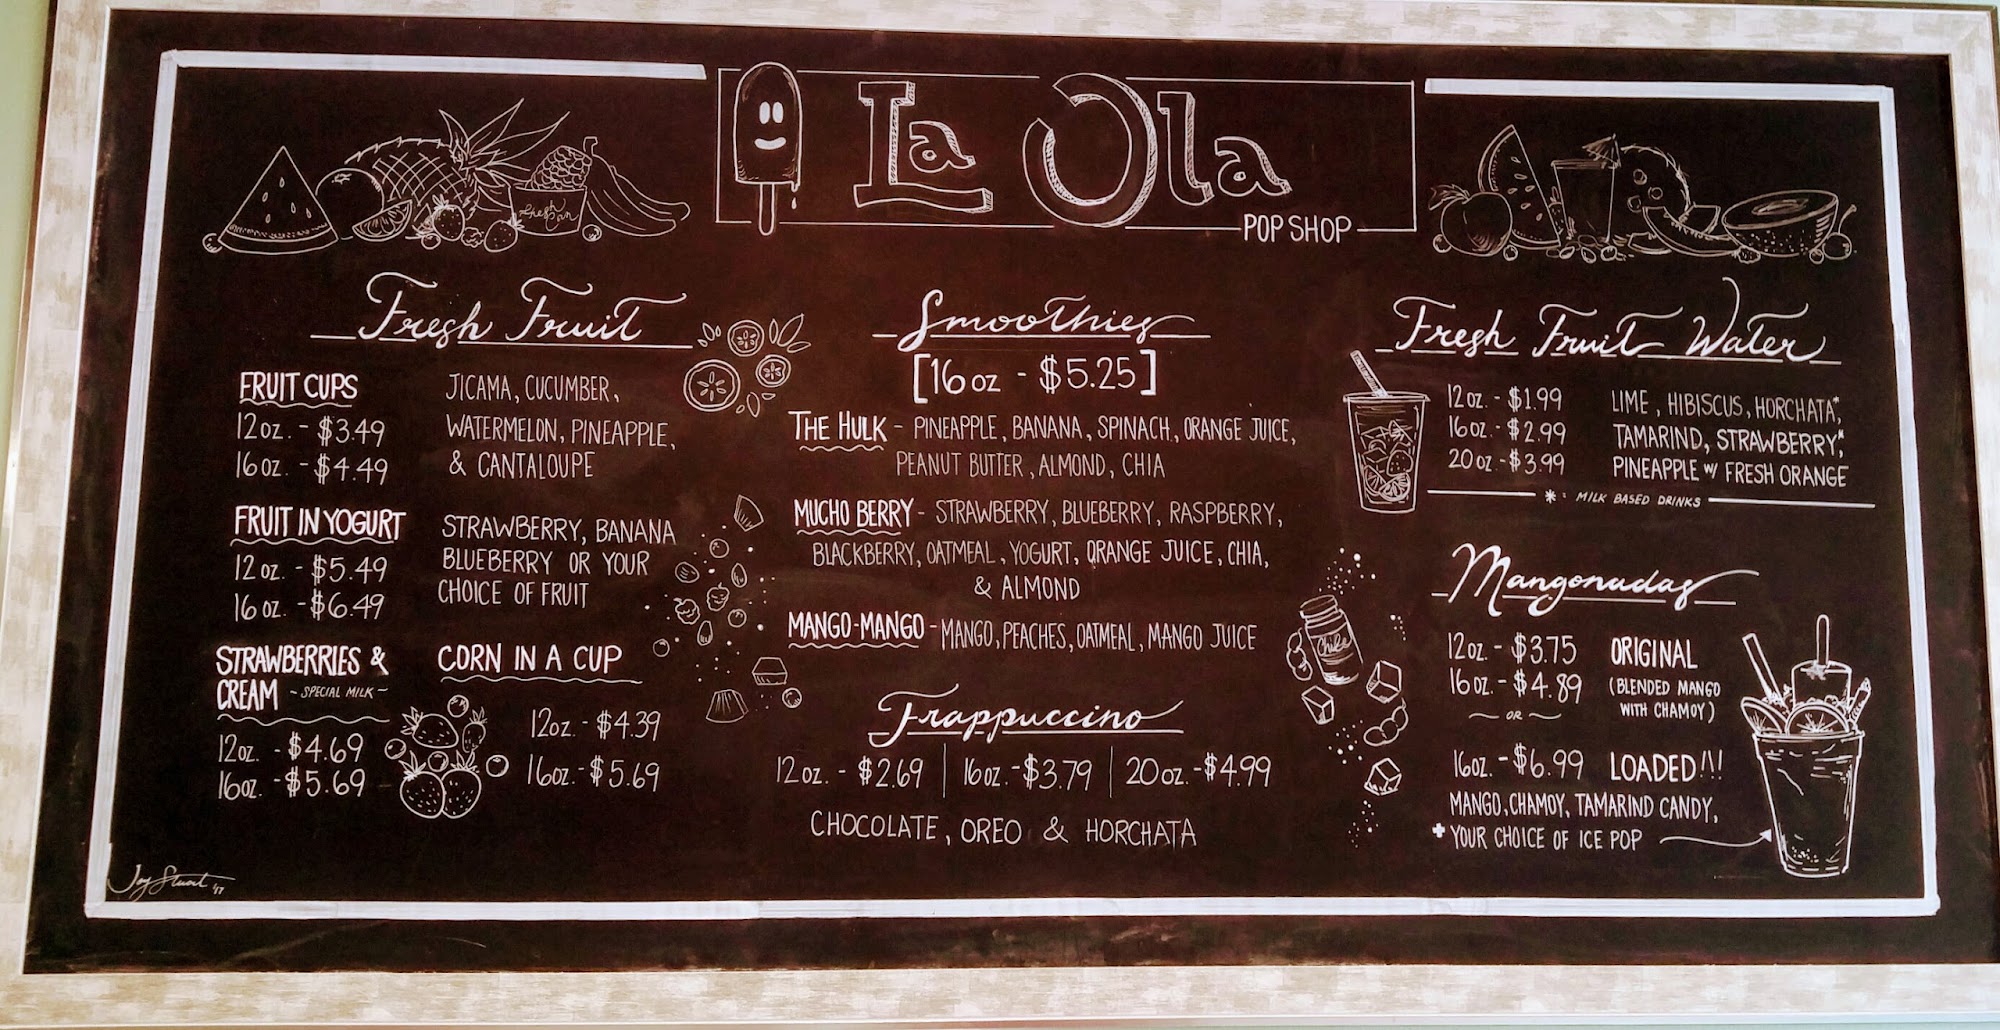 La Ola
POP SHOP
Fresh Fruit
FRUIT CUPS
12oz. - $3.49
16oz. - $4.49
JICAMA, CUCUMBER,
WATERMELON, PINEAPPLE,
& CANTALOUPE
FRUIT IN YOGURT
12oz. - $5.49
16oz. - $6.49
STRAWBERRY, BANANA
BLUEBERRY OR YOUR
CHOICE OF FRUIT
STRAWBERRIES &
CREAM ~SPECIAL MILK~
12oz. - $4.69
16oz. - $5.69
CORN IN A CUP
12oz. - $4.39
16oz. - $5.69
Smoothies
[16oz - $5.25]
THE HULK - PINEAPPLE, BANANA, SPINACH, ORANGE JUICE,
PEANUT BUTTER, ALMOND, CHIA
MUCHO BERRY - STRAWBERRY, BLUEBERRY, RASPBERRY,
BLACKBERRY, OATMEAL, YOGURT, ORANGE JUICE, CHIA,
& ALMOND
MANGO-MANGO - MANGO, PEACHES, OATMEAL, MANGO JUICE
Frappuccino
12oz. - $2.69 | 16oz. - $3.79 | 20oz. - $4.99
CHOCOLATE, OREO & HORCHATA
Fresh Fruit Water
12oz. - $1.99
16oz. - $2.99
20oz. - $3.99
LIME, HIBISCUS, HORCHATA*,
TAMARIND, STRAWBERRY,*
PINEAPPLE w/ FRESH ORANGE
* : MILK BASED DRINKS
Mangonadas
12oz. - $3.75
16oz. - $4.89
ORIGINAL
(BLENDED MANGO
WITH CHAMOY)
~ OR ~
16oz. - $6.99 LOADED!!!
MANGO, CHAMOY, TAMARIND CANDY,
+ YOUR CHOICE OF ICE POP
Jay Stuart '17